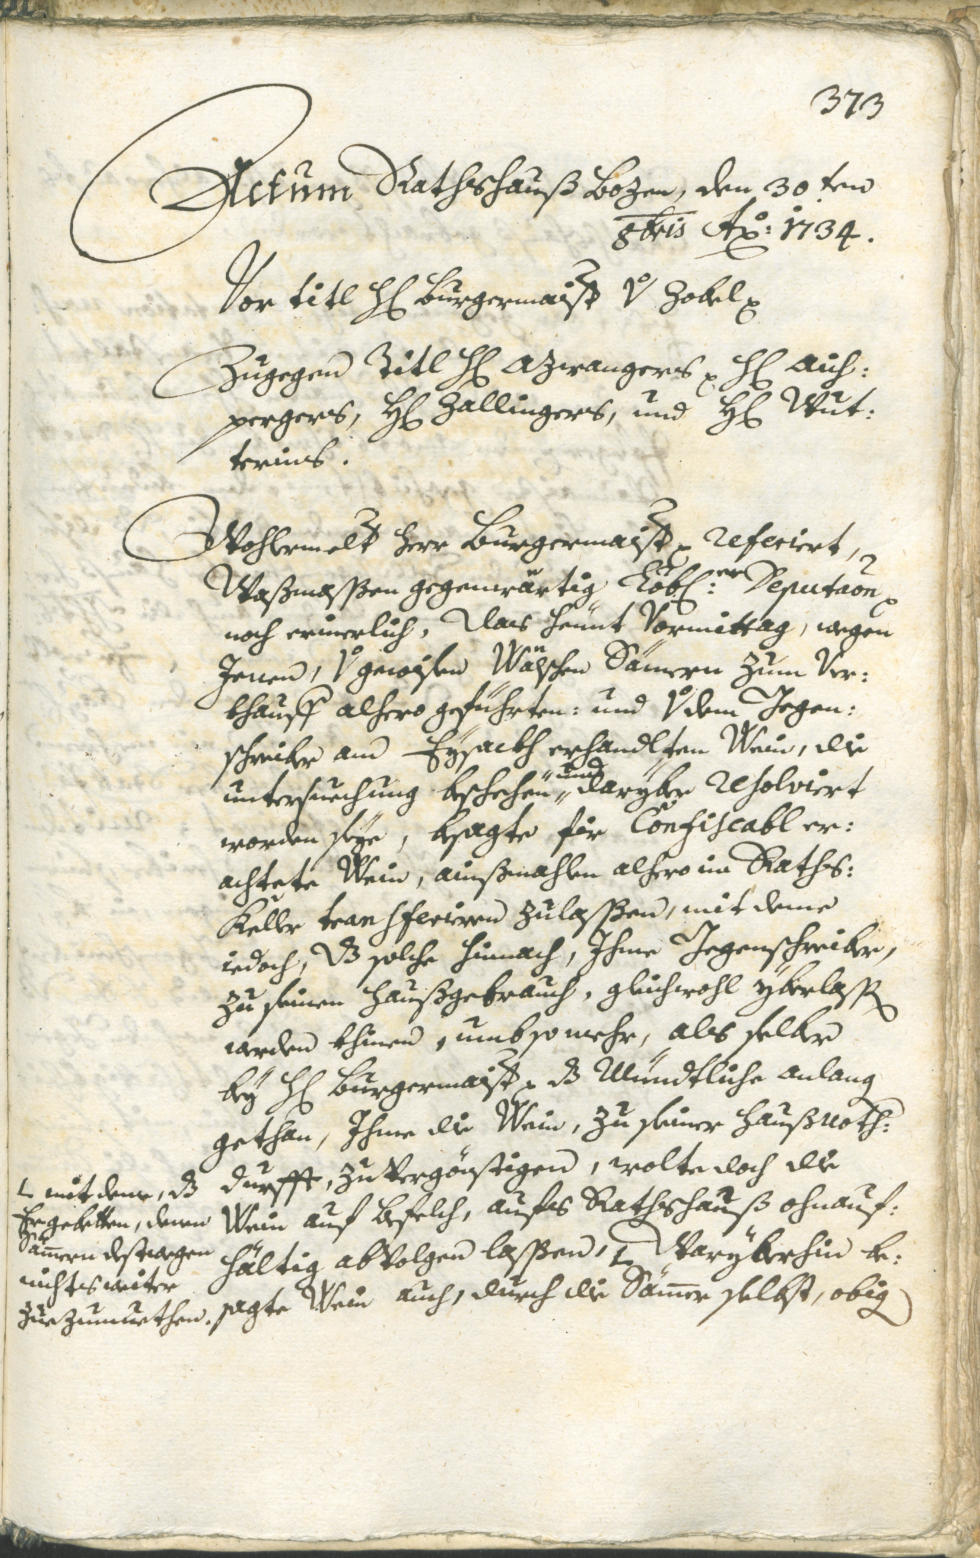 373
Actum Rathshauß Bozen, den 30.ten
8bris Ao: 1734.
Vor titl H Burgermaist v Zobel
Zugegen Titl H Azwangers, H Aich:
pergers, H Zallingers, und H Wut:
terins.
Wohlermelt Herr Burgermaist referiert,
Waßmassen gegenwärtig Löbl: er Deputaon
noch erinerlich, das heunt Vormittag, wegen
Jenen, v gewisen Wälschen Sämern zum Ver:
khauff alhero geführten: und v dem Gegen:
schreiber am Eysackh erhandlten Wein, die
untersuechung beschehen und daryber resolviert
worden seye, besagte für Confiscabl er:
achtete Wein, ainßmahlen alhero in Raths:
Keller transferieren zulassen, mit deme
iedoch, dz solche hinnach, Ihme Gegenschreiber,
zu seinen Haußgebrauch, gleichwohl yberlassen
werden khinen, umb so mehr, als selber
bey H Burgermaist dz Mündtliche anlang
gethan, Ihme die Wein, zu seiner Haußnoth:
durfft, zu Vergönstigen, wolte doch die
Wein auf befelch, aufs Rathshauß ohnauf:
hältig abVolgen lassen, Warüberhin be:
sagte Wein auch, durch die Sämer selbst, obig
mit deme, dz
Er gebetten, denen
Sämern destwegen
nichts weiter
zuezumuethen.